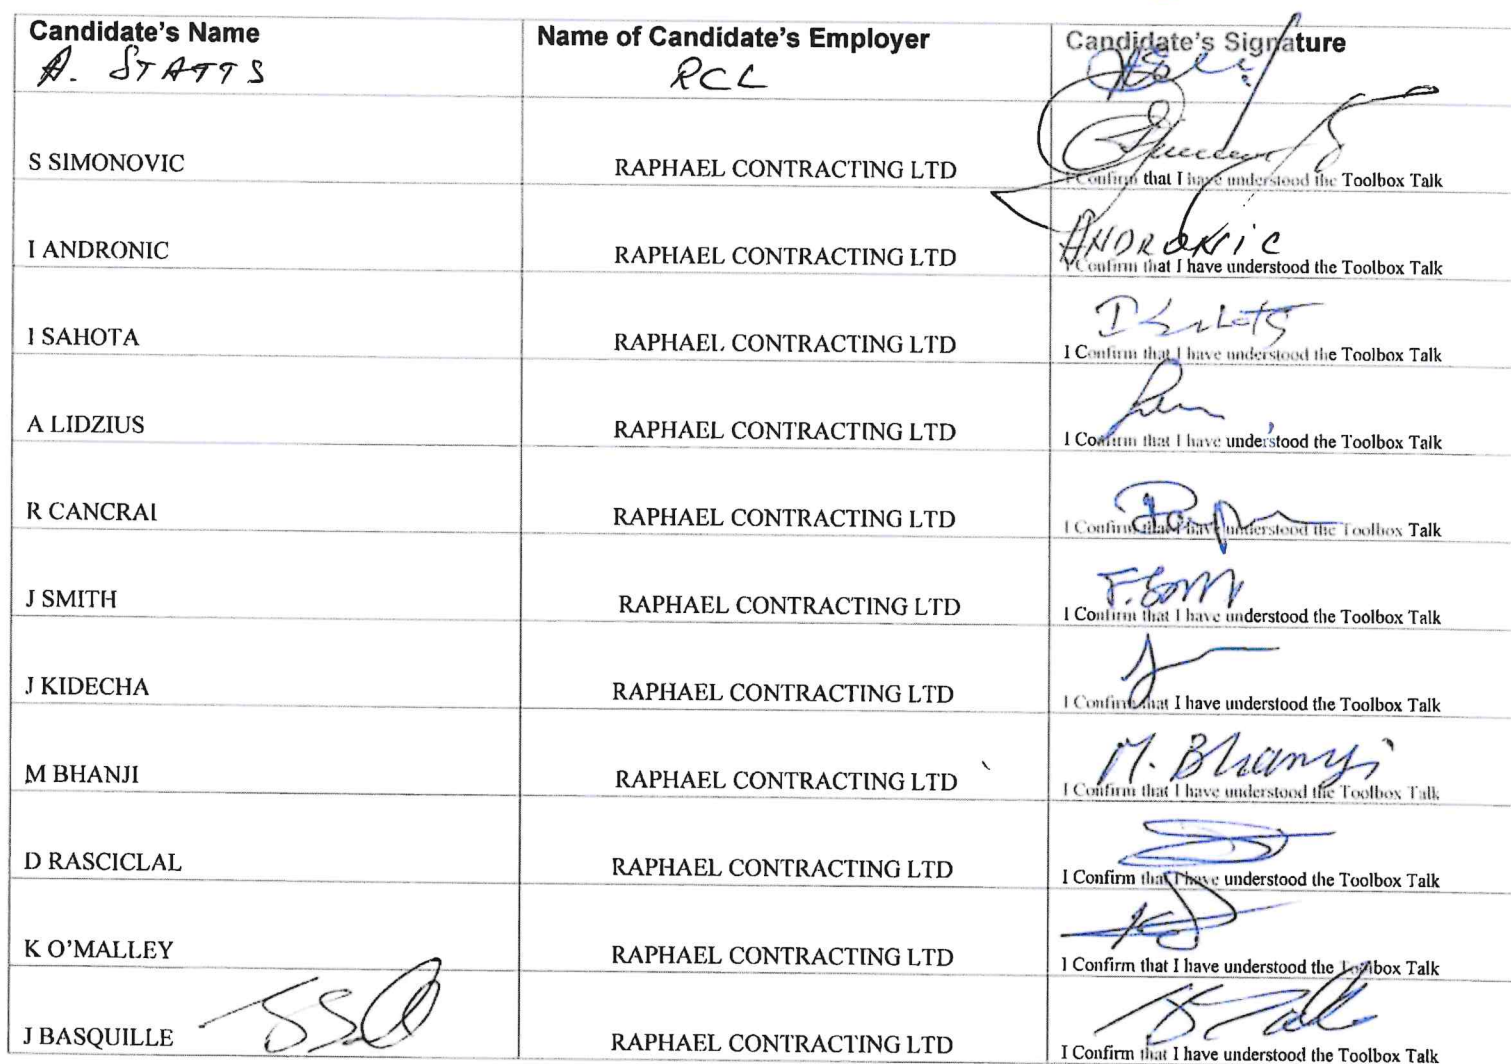 Candidate's Name Name of Candidate's Employer Candidate's Signature
A. STATTS RCL
S SIMONOVIC RAPHAEL CONTRACTING LTD
I Confirm that I have understood the Toolbox Talk
ANDRONIC
I ANDRONIC RAPHAEL CONTRACTING LTD
I Confirm that I have understood the Toolbox Talk
I SAHOTA RAPHAEL CONTRACTING LTD
I Confirm that I have understood the Toolbox Talk
A LIDZIUS RAPHAEL CONTRACTING LTD
I Confirm that I have understood the Toolbox Talk
R CANCRAI RAPHAEL CONTRACTING LTD
I Confirm that I have understood the Toolbox Talk
J SMITH RAPHAEL CONTRACTING LTD
I Confirm that I have understood the Toolbox Talk
J KIDECHA RAPHAEL CONTRACTING LTD
I Confirm that I have understood the Toolbox Talk
M. Bhanji
M BHANJI RAPHAEL CONTRACTING LTD
I Confirm that I have understood the Toolbox Talk
D RASCICLAL RAPHAEL CONTRACTING LTD
I Confirm that I have understood the Toolbox Talk
K O'MALLEY RAPHAEL CONTRACTING LTD
I Confirm that I have understood the Toolbox Talk
J BASQUILLE RAPHAEL CONTRACTING LTD
I Confirm that I have understood the Toolbox Talk